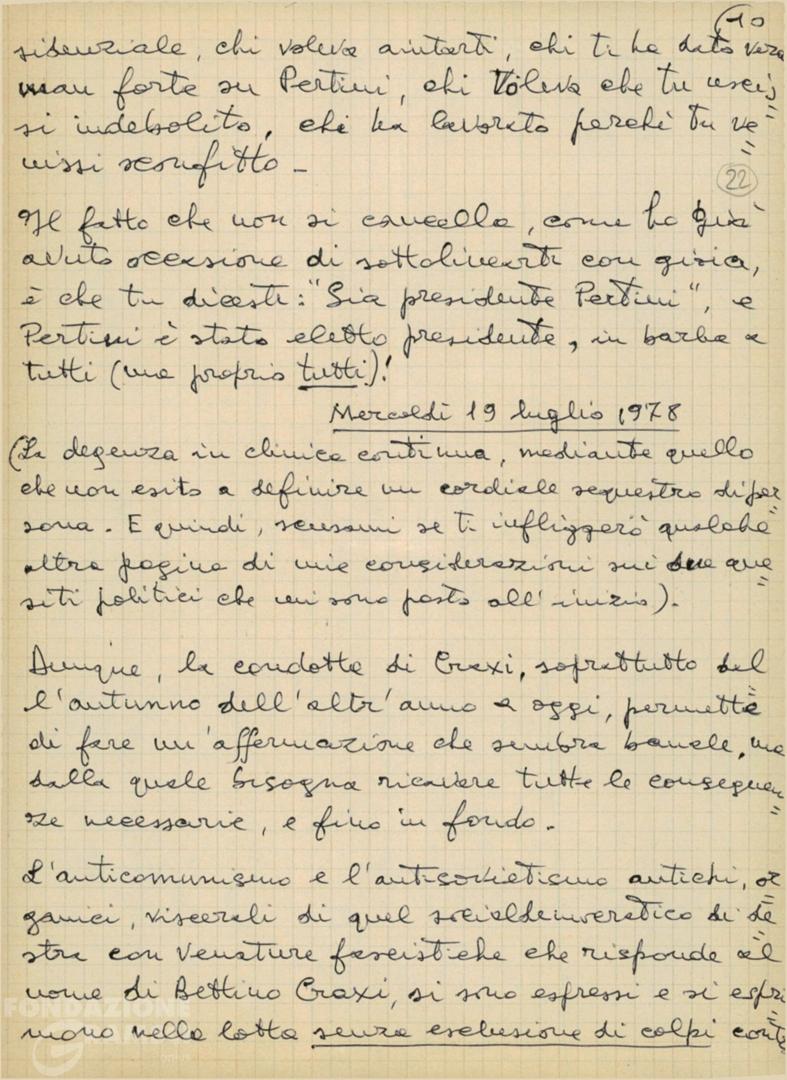 10
sidenziale, chi voleva aiutarti, chi ti ha dato vera
man forte su Pertini, chi voleva che tu uscis
si indebolito, chi ha lavorato perché tu ve=
nissi sconfitto -
22
Il fatto che non si cancella, come ho già
avuto occasione di sottolinearti con gioia,
è che tu dicesti: "Sia presidente Pertini", e
Pertini è stato eletto presidente, in barba a
tutti (ma proprio tutti)!
Mercoldì 19 luglio 1978
(La degenza in clinica continua, mediante quello
che non esito a definire un cordiale sequestro di per=
sona. E quindi, scusami se ti infliggerò qualche
altra pagina di mie considerazioni sui due que=
siti politici che mi sono posto all'inizio).
Dunque, la condotta di Craxi, soprattutto dal=
l'autunno dell'altr'anno a oggi, permette
di fare un'affermazione che sembra banale, ma
dalla quale bisogna ricavare tutte le conseguen=
ze necessarie, e fino in fondo.
L'anticomunismo e l'antisovietismo antichi, or=
ganici, viscerali di quel socialdemocratico di de=
stra con venature fascistiche che risponde al
nome di Bettino Craxi, si sono espressi e si espri=
mono nella lotta senza esclusione di colpi cont
FONDAZIONE